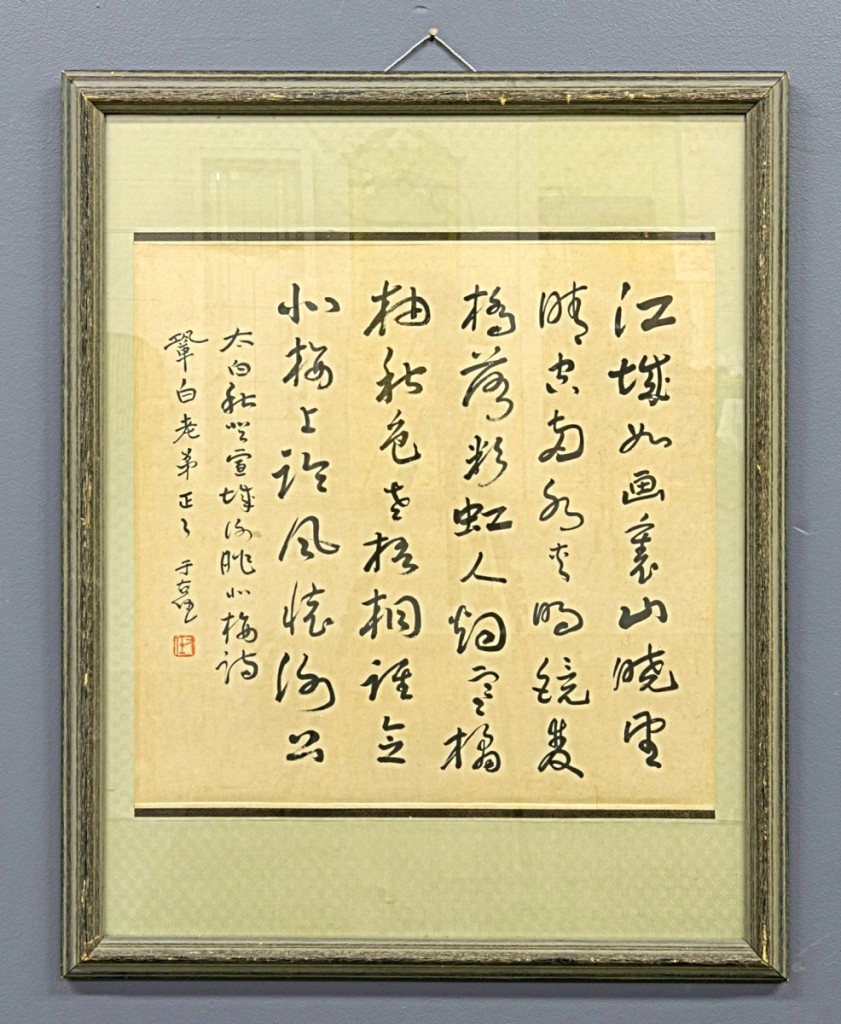 江城如画裏山曉望
晴空兩水夾明鏡雙
橋落彩虹人烟寒橘
柚秋色老梧桐誰念
北樓上臨風懷謝公
太白秋登宣城謝朓北樓詩
鞏白老弟正之 于右任